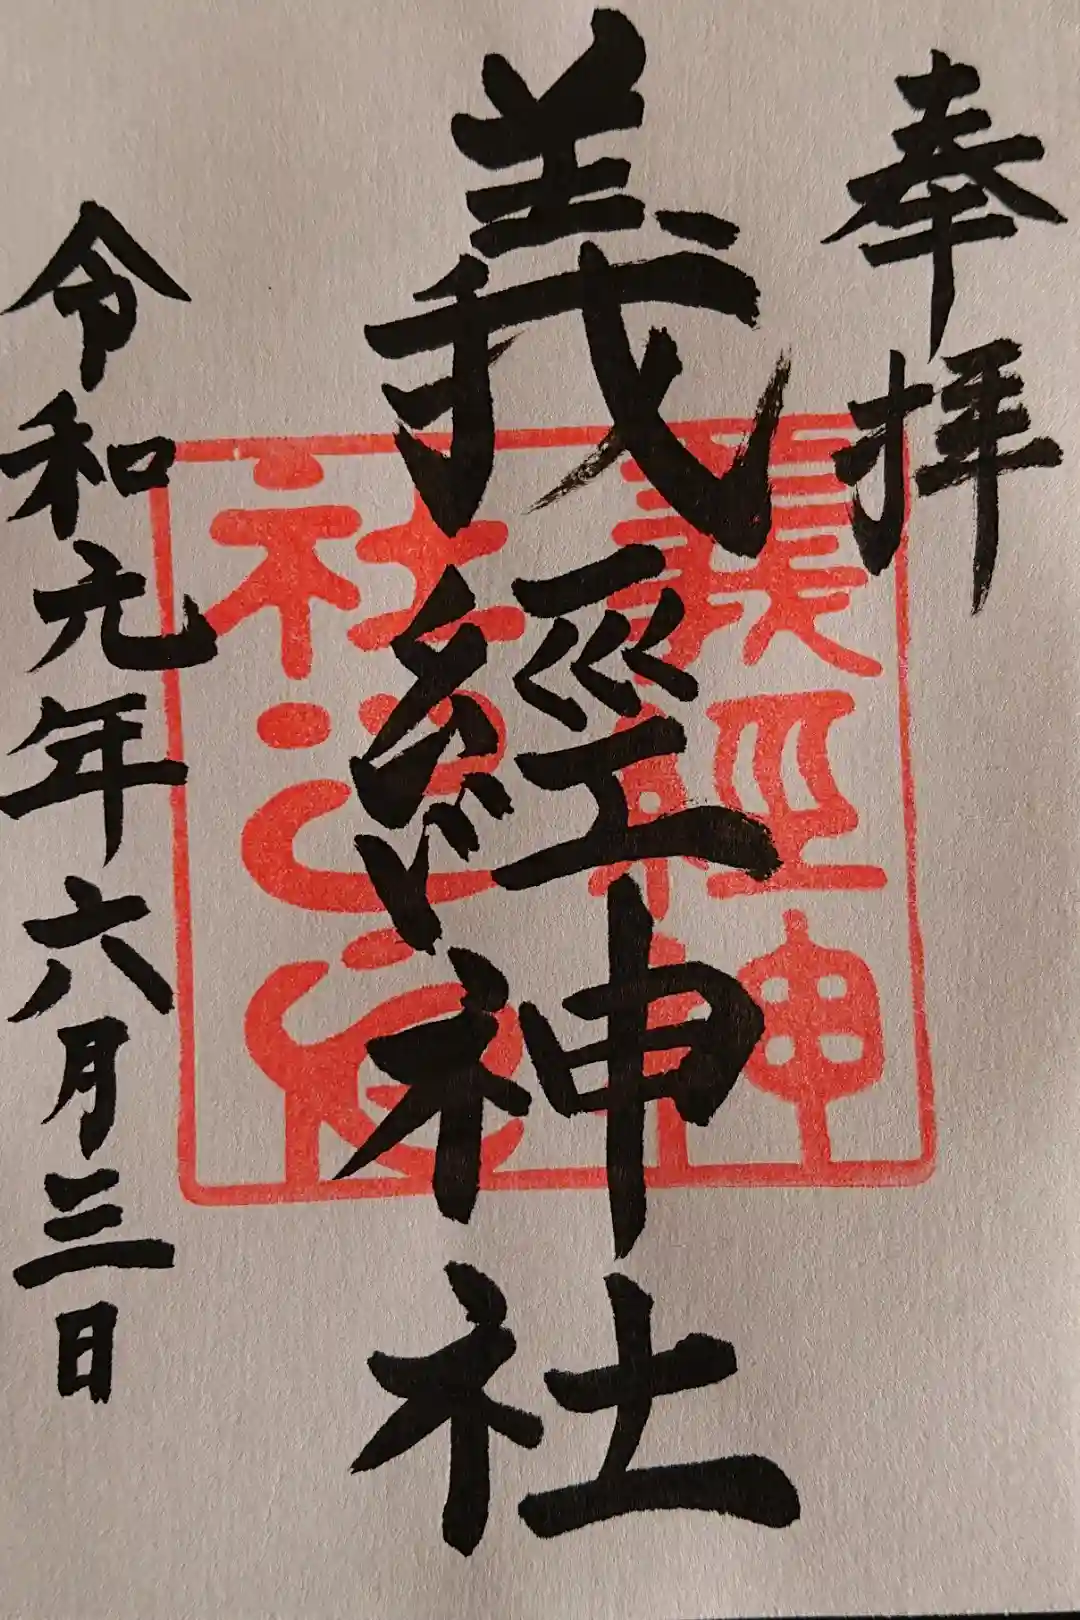 奉拝
義經神社
令和元年六月三日
義経神
社之宮